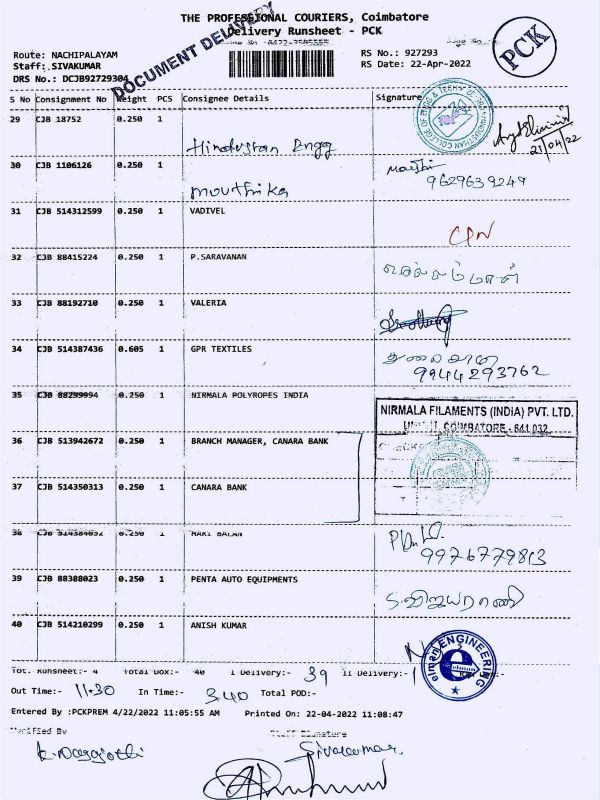 THE PROFESSIONAL COURIERS, Coimbatore
Delivery Runsheet - PCK
DOCUMENT DELIVERY
PCK
Route: NACHIPALAYAM
RS No.: 927293
Staff:.SIVAKUMAR
RS Date: 22-Apr-2022
DRS No.: DCJB92729304
S No Consignment No Weight PCS Consignee Details Signature
29 CJB 18752 0.250 1 Hindustan Engg
21/04/22
30 CJB 1106126 0.250 1 Mouthika
9629639249
31 CJB 514312599 0.250 1 VADIVEL
32 CJB 88415224 0.250 1 P.SARAVANAN
33 CJB 88192710 0.250 1 VALERIA
34 CJB 514387436 0.605 1 GPR TEXTILES
9944293762
35 CJB 88299994 0.250 1 NIRMALA POLYROPES INDIA
NIRMALA FILAMENTS (INDIA) PVT. LTD.
COIMBATORE - 641 032
36 CJB 513942672 0.250 1 BRANCH MANAGER, CANARA BANK
37 CJB 514350313 0.250 1 CANARA BANK
38 0.250 1 HARI BALAN
9976779813
39 CJB 88388023 0.250 1 PENTA AUTO EQUIPMENTS
S.விஜயராணி
40 CJB 514210299 0.250 1 ANISH KUMAR
elman ENGINEERING
Tot. Runsheet:- 4 Total Dox:- 40 I Delivery:- 39 II Delivery:- 1
Out Time:- 11.30 In Time:- 3.40 Total POD:-
Entered By :PCKPREM 4/22/2022 11:05:55 AM Printed On: 22-04-2022 11:08:47
Verified By Staff Signature
Sivakumar